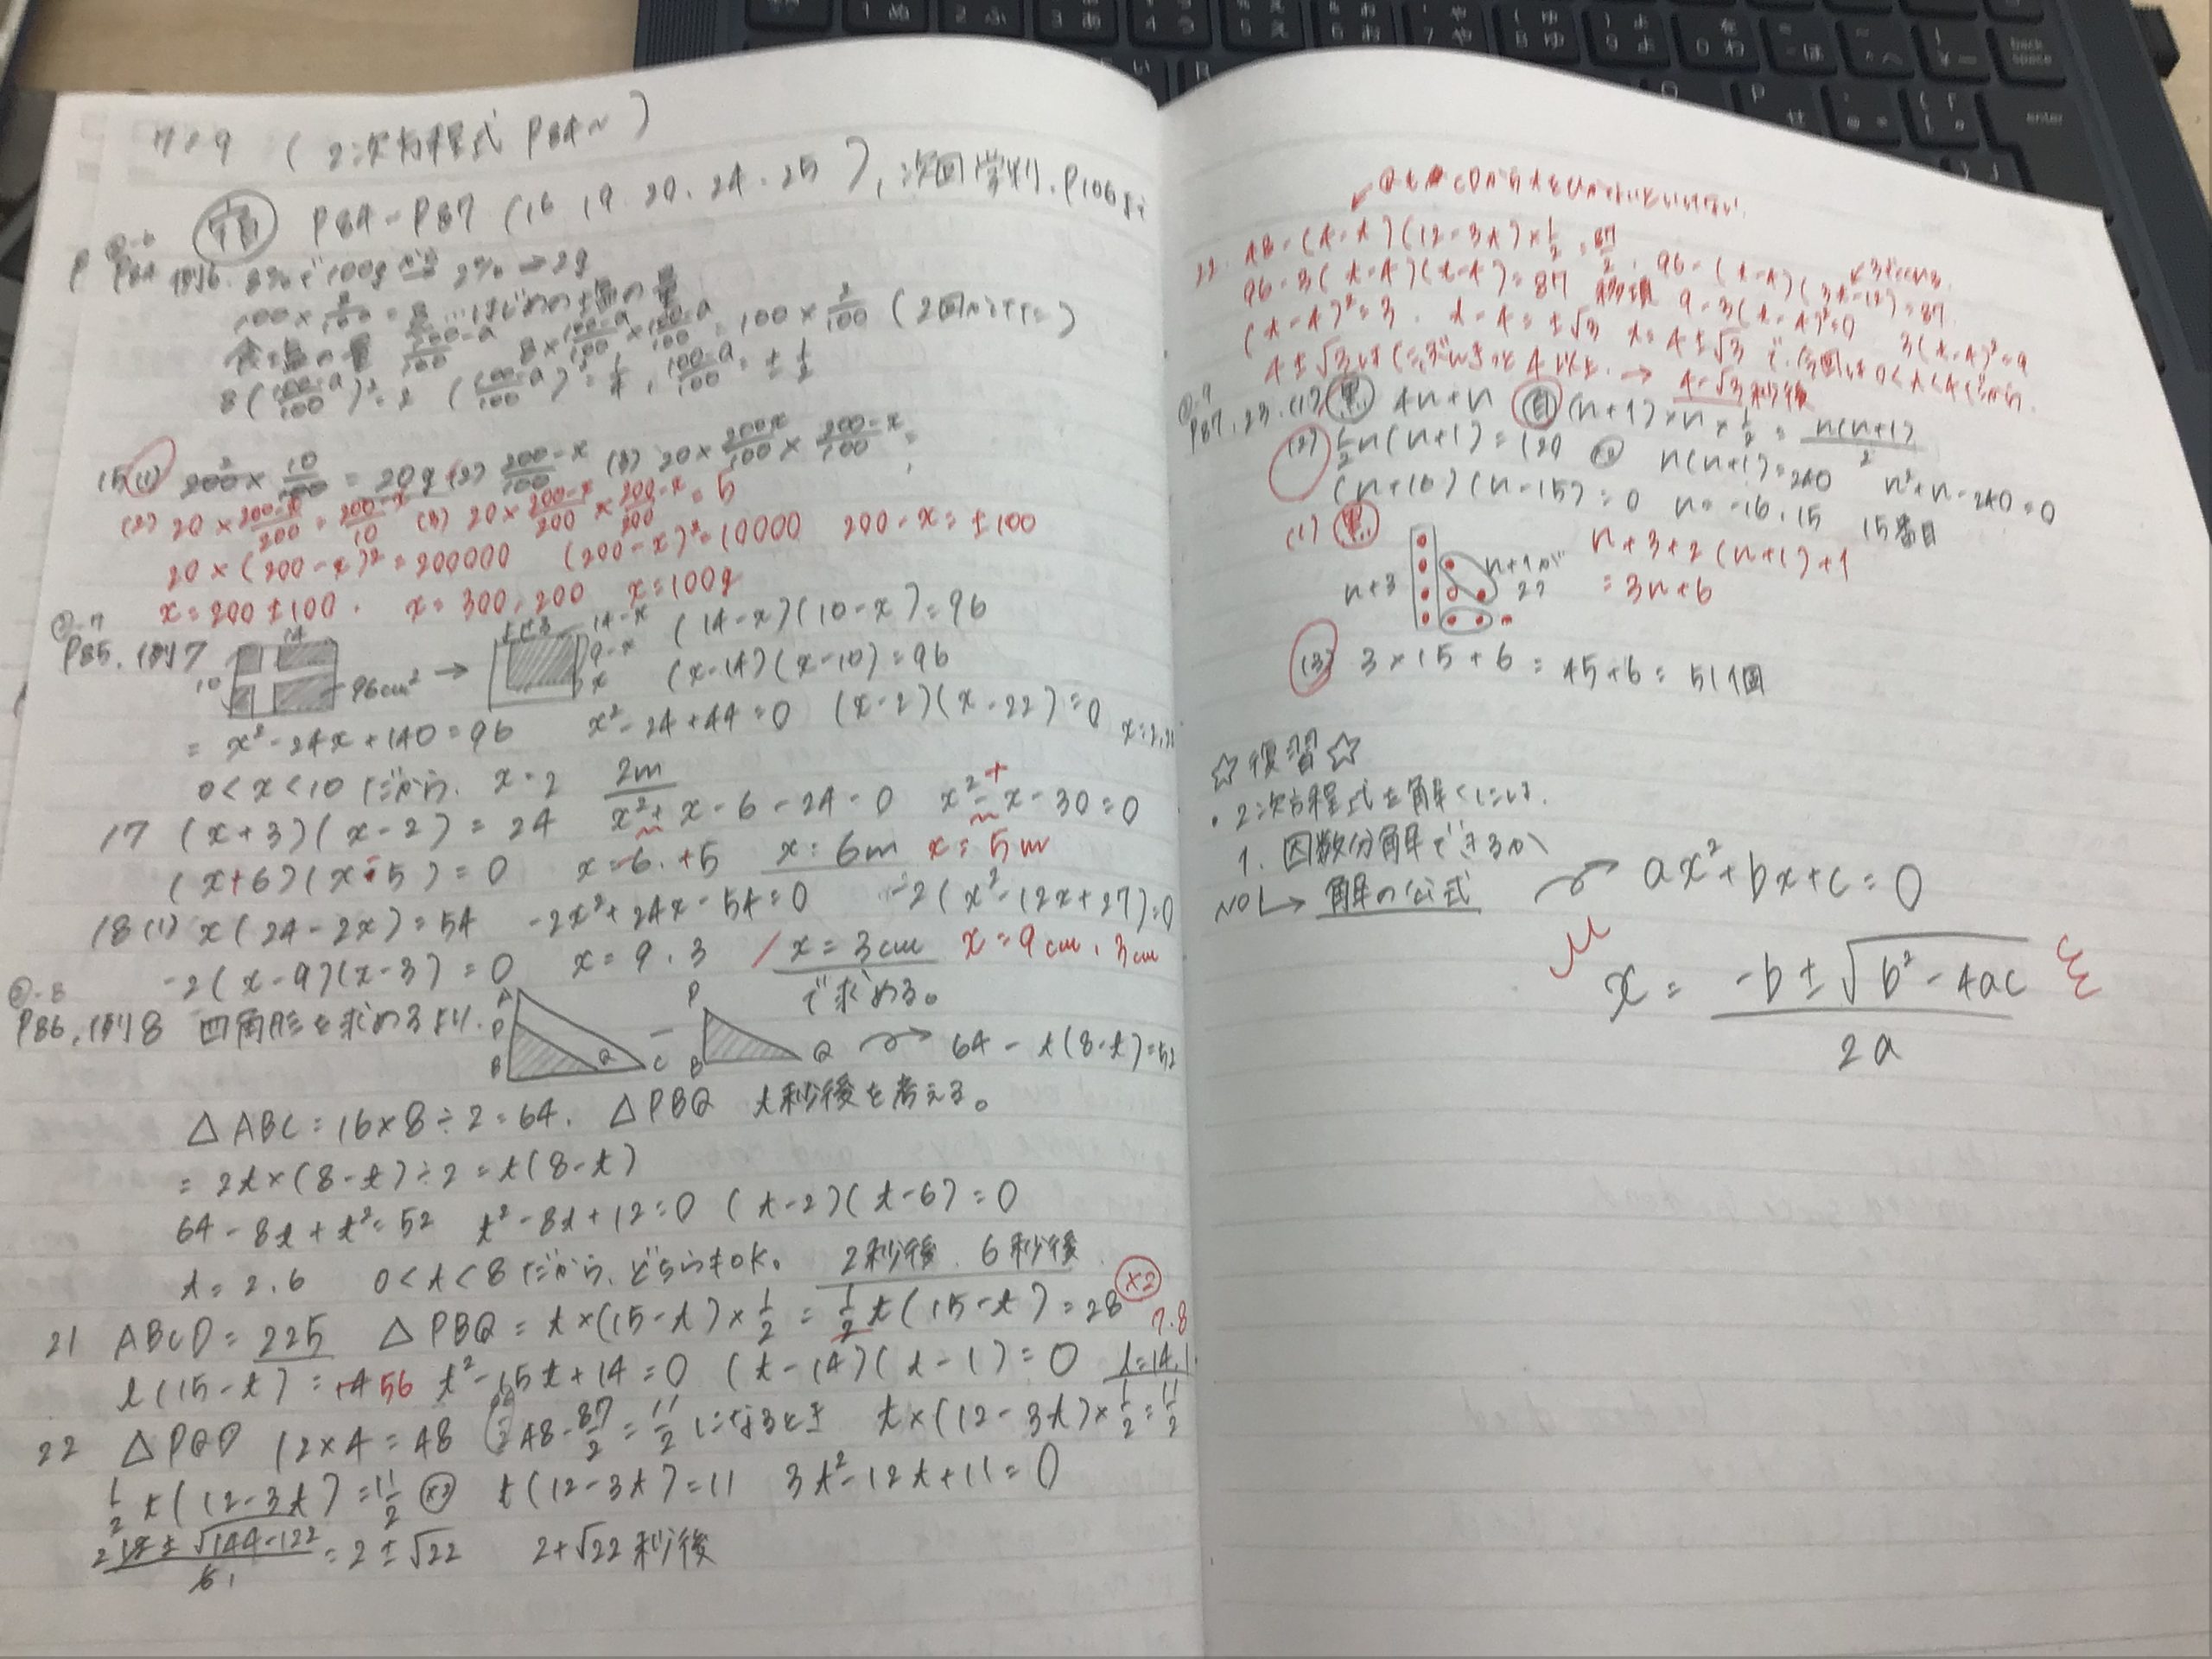 7/29 (2次方程式 P84〜)
宿 P84-P87 (16.19.20.24.25), 次回学判. P106より
P84 例6. 8%で100g 2% → 2g
100 × 8/100 = 8 … はじめの塩の量
食塩の量 (100-a)/100 8 × (100-a)/100 × (100-a)/100 = 100 × 2/100 (2回やった)
8((100-a)/100)² = 2 ((100-a)/100)² = 1/4, (100-a)/100 = ± 1/2
15(1) 200 × 10/100 = 20g (2) (200-x)/100 (3) 20 × (200-x)/100 × (200-x)/100 =
(2) 20 × (200-x)/200 = (200-x)/10 (3) 20 × (200-x)/200 × (200-x)/200 = 5
20 × (200-x)² = 200000 (200-x)² = 10000 200-x = ±100
x = 200 ± 100. x = 300, 200 x = 100g
②-7
P85. 例7 14 10 96cm² → 14-x (14-x)(10-x) = 96
(x-14)(x-10) = 96
= x² - 24x + 140 = 96 x² - 24 + 44 = 0 (x-2)(x-22) = 0 x = 2,22
0 < x < 10 だから. x = 2 2m
17 (x+3)(x-2) = 24 x² + x - 6 - 24 = 0 x² - x - 30 = 0 +
(x+6)(x-5) = 0 x = -6. +5 x = 6m x = 5m
18(1) x(24-2x) = 54 -2x² + 24x - 54 = 0 -2(x² - 12x + 27) = 0
-2(x-9)(x-3) = 0 x = 9. 3 x = 3cm x = 9cm, 3cm
②-8
P86. 例8 四角形を求めるより. A P B Q C - P B Q で求める。 64 - t(8-t) = 52
△ABC = 16×8÷2 = 64. △PBQ t秒後を考える。
= 2t×(8-t)÷2 = t(8-t)
64 - 8t + t² = 52 t² - 8t + 12 = 0 (t-2)(t-6) = 0
t = 2.6 0 < t < 8 だから, どちらもOK。 2秒後. 6秒後
21 ABCD = 225 △PBQ = t×(15-t)×1/2 = 1/2 t(15-t) = 28 ×2
7.8
t(15-t) = 14 56 t² - 15t + 14 = 0 (t-14)(t-1) = 0 t = 14.1
22 △PQD 12×4 = 48 48 - 87/2 = 11/2 になるとき t×(12-3t)×1/2 = 11/2
1/2 t(12-3t) = 11/2 ×2 t(12-3t) = 11 3t² - 12t + 11 = 0
12 ± √144-122 / 6 = 2 ± √22 2+√22 秒後
QもCDからtをひかないといけない.
22. 48 - (4-t)(12-3t) × 1/2 = 87/2, 96 - (t-4)(3t-12) = 87. 3でくくる.
96 - 3(t-4)(t-4) = 87 移項 9 - 3(t-4)² = 0 3(t-4)² = 9
(t-4)² = 3. t-4 = ±√3 t = 4±√3 で, 今回は 0 < t < 4 だから.
4+√3 4以上. → 4-√3 秒後
②-9
P87, 23. (1) 黒 4n+n 白 (n+1)×n×1/2 = n(n+1)/2
(2) 1/2 n(n+1) = 120 ×2 n(n+1) = 240 n² + n - 240 = 0
(n+16)(n-15) = 0 n = -16, 15 15番目
(1) 黒 n+3 n+1が 2つ n+3+2(n+1)+1
= 3n+6
(3) 3×15+6 = 45+6 = 51個
☆復習☆
・2次方程式を解くには.
1. 因数分解できるか
NO → 解の公式 ax² + bx + c = 0
x = -b ± √b² - 4ac / 2a